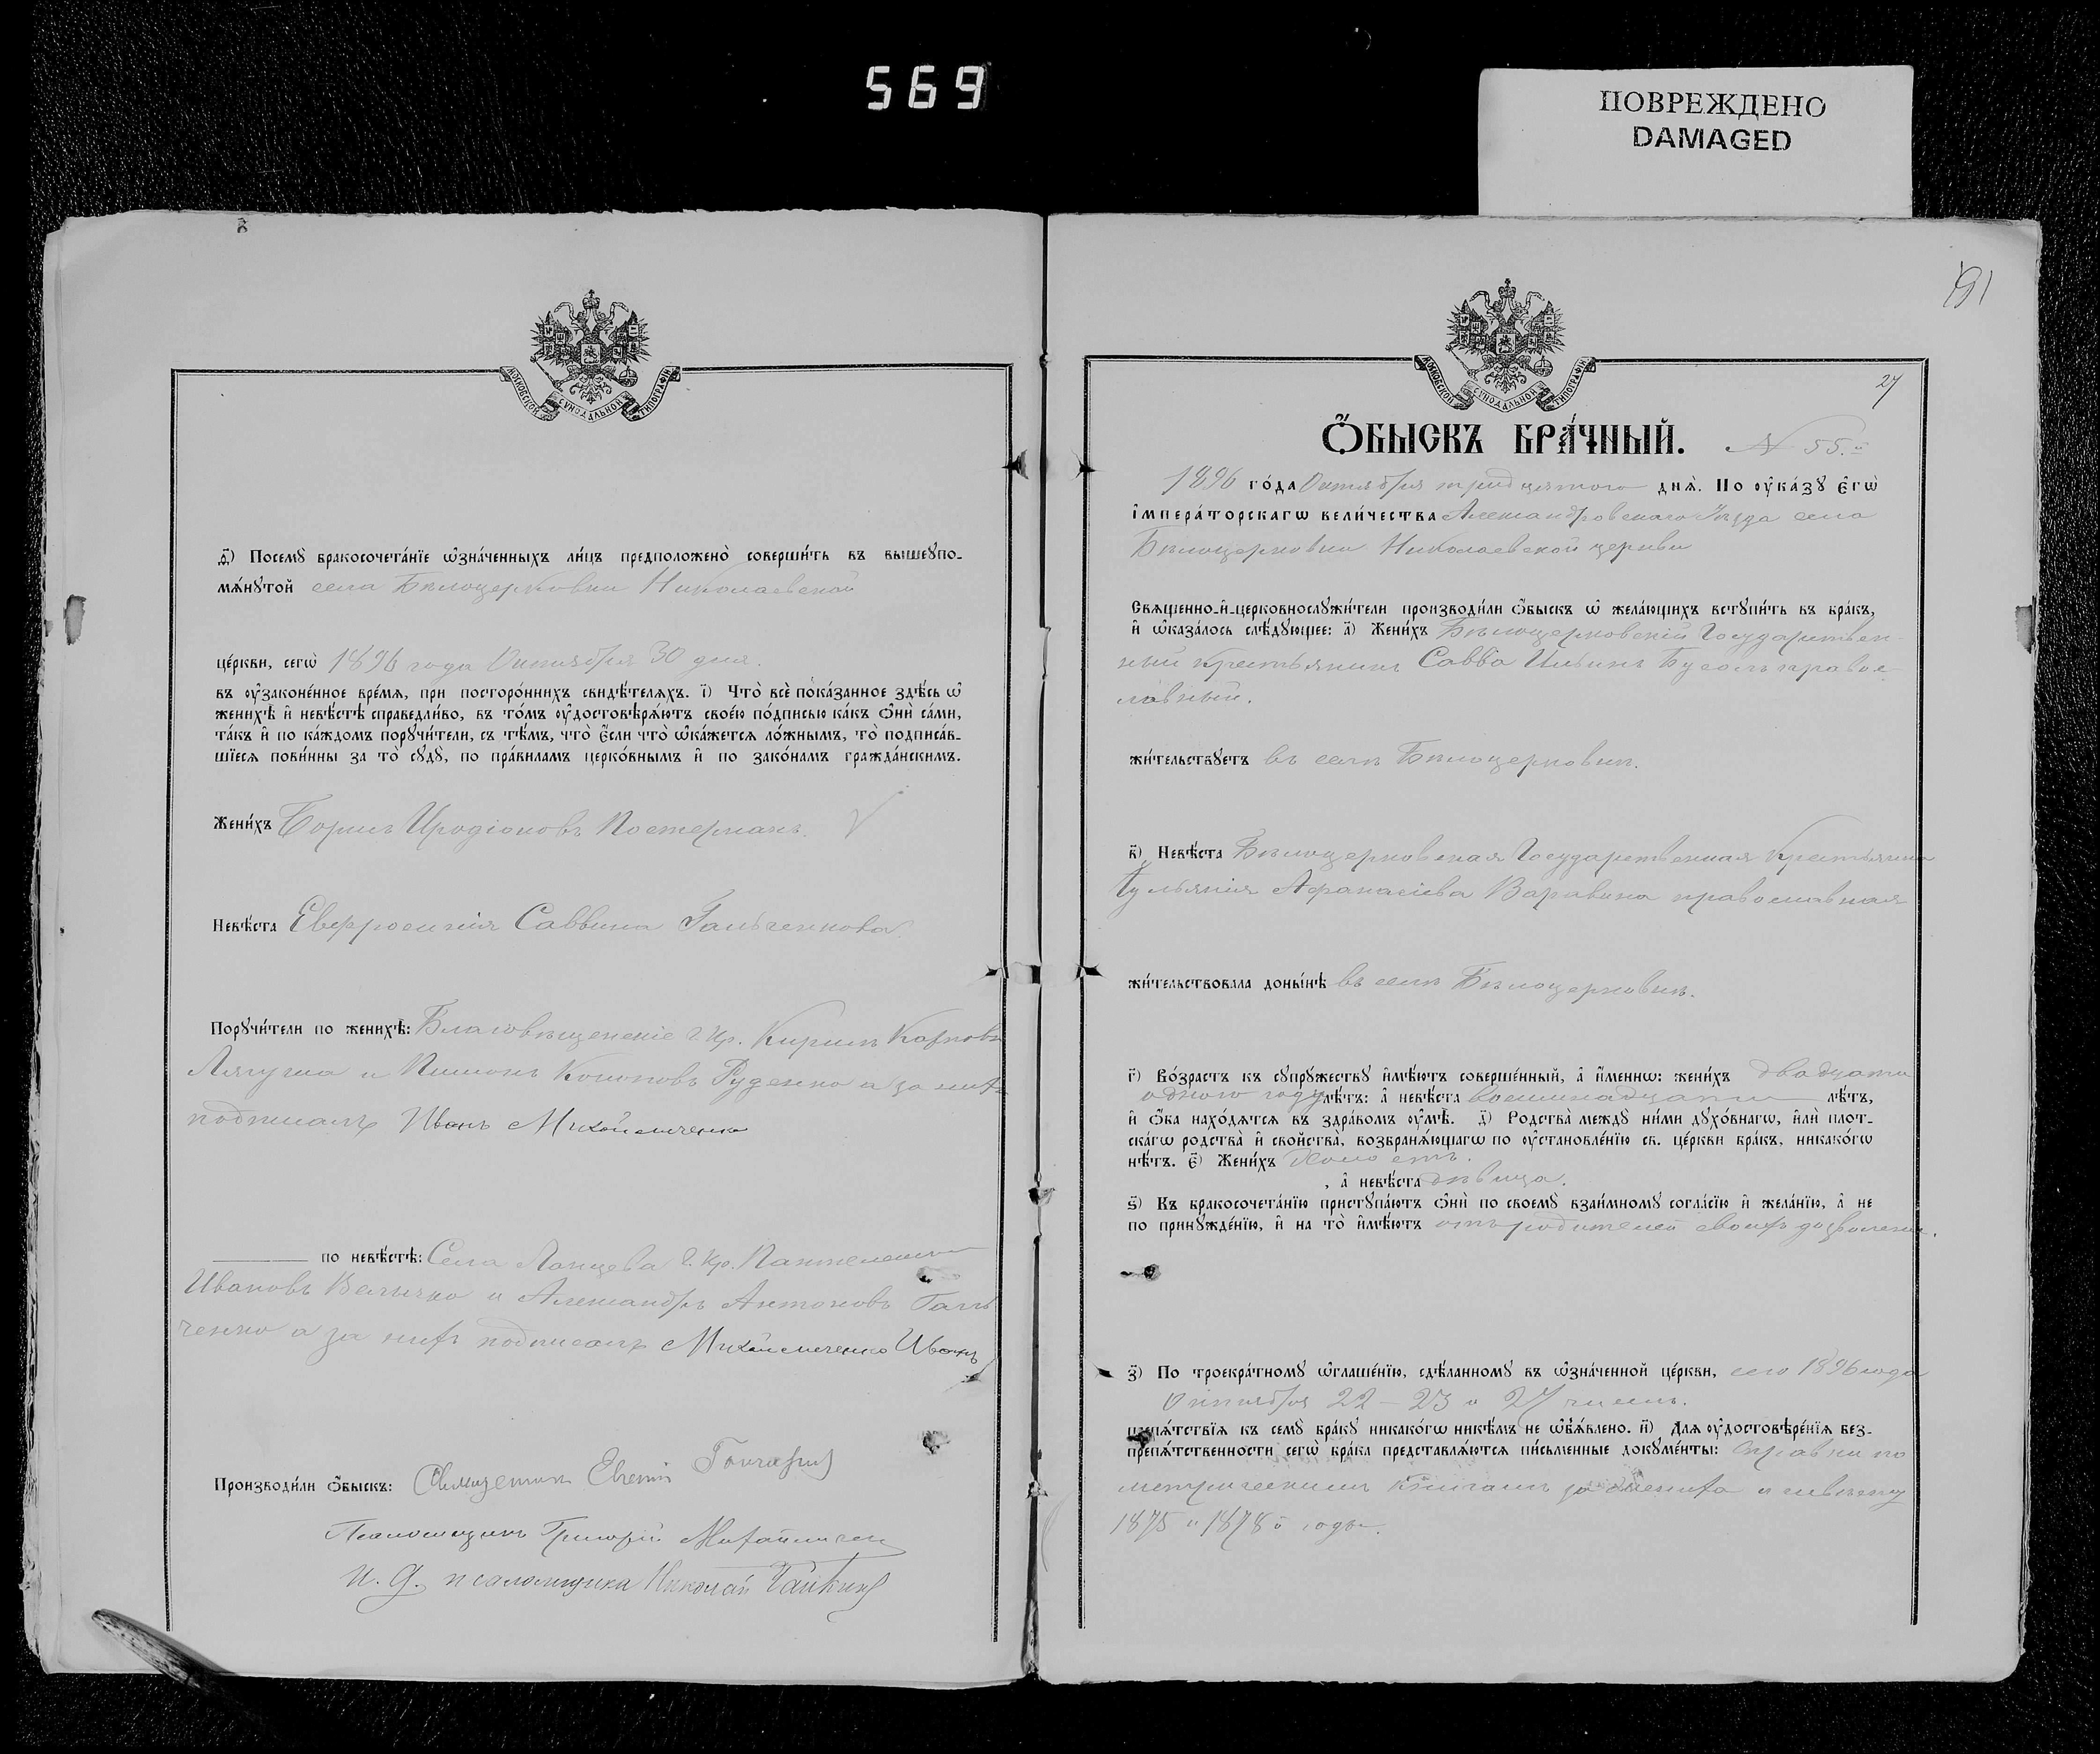 569
ПОВРЕЖДЕНО
DAMAGED
МОСКОВСКОЙ СѴНОДАЛЬНОЙ ТИПОГРАФІИ
ѳ҃) Посемꙋ бракосочета́нїе ѡ҆зна́ченныхъ ли́цъ предположено̀ соверши́ть въ вышеꙋпо-
мѧ́нꙋтой села Бѣлоцерковки Николаевской
це́ркви, сегѡ̀ 1896 года Октября 30 дня.
въ ᲂу҆зако́ненное вре́мѧ, при посторо́ннихъ свидѣ́телѧхъ. і҃) Что̀ всѐ пока́занное здѣ́сь ѡ҆
женихѣ̀ и҆ невѣ́стѣ справедли́во, въ то́мъ ᲂу҆достовѣрѧ́ютъ свое́ю по́дписью ка́къ ѻ҆нѝ са́ми,
та́къ и҆ по ка́ждомъ порꙋчи́тели, съ тѣ́мъ, что̀ є҆́сли что̀ ѡ҆ка́жетсѧ ло́жнымъ, то̀ подписа́в-
шїесѧ пови́нны за то̀ сꙋдꙋ̀, по пра́виламъ церко́внымъ и҆ по зако́намъ гражда́нскимъ.
Жени́хъ Борисъ Иродіоновъ Костерманъ.
Невѣ́ста Евфросинія Саввина Гальченкова
Порꙋчи́тели по женихѣ̀: Благовѣщенскіе г. кр. Кирилъ Карповъ
Лягуша и Пименъ Кононовъ Руденко а за нихъ
подписалъ Иванъ Михайличенко
по невѣ́стѣ: Села Ланцева г. кр. Пантелеимонъ
Ивановъ Величко и Александръ Антоновъ Галь
ченко а за нихъ подписалъ Михайличенко Иванъ
Производи́ли ѻ҆́быскъ: Священникъ Евгеній Гончаровъ
Псаломщикъ Григорій Михайличенко
И. д. псаломщика Николай
191
МОСКОВСКОЙ СѴНОДАЛЬНОЙ ТИПОГРАФІИ
27
Ѻ҆́БЫСКЪ БРА́ЧНЫЙ. № 55.й
1896 го́да Октября тридцятого днѧ̀. По ᲂу҆ка́зꙋ є҆гѡ̀
і҆мпера́торскагѡ вели́чества Александровскаго Уѣзда села
Бѣлоцерковки Николаевской церкви
Свѧще́нно-и҆-церковнослꙋжи́тели производи́ли ѻ҆́быскъ ѡ҆ жела́ющихъ встꙋпи́ть въ бра́къ,
и҆ ѡ҆каза́лось слѣ́дꙋющее: а҃) Жени́хъ Бѣлоцерковскій Государствен-
ный крестьянинъ Савва Ильинъ Бусолъ правос-
лавный.
жи́тельствꙋетъ въ селѣ Бѣлоцерковкѣ.
в҃) Невѣ́ста Бѣлоцерковская Государственная Крестьянка
Іульянія Афанасіева Варавина православная
жи́тельствовала доны́нѣ въ селѣ Бѣлоцерковкѣ.
г҃) Во́зрастъ къ сꙋпрꙋ́жествꙋ и҆мѣ́ютъ соверше́нный, а҆ и҆́меннѡ: жени́хъ двадцати
одного году лѣ́тъ: а҆ невѣ́ста восемнадцати лѣ́тъ,
и҆ ѻ҆́ба нахо́дѧтсѧ въ здра́вомъ ᲂу҆мѣ̀. д҃) Родства̀ междꙋ ни́ми дꙋхо́внагѡ, и҆лѝ плот-
ска́гѡ родства̀ и҆ свойства̀, возбранѧ́ющагѡ по ᲂу҆становле́нїю св. це́ркви бра́къ, никако́гѡ
нѣ́тъ. є҃) Жени́хъ Холостъ.
, а҆ невѣ́ста дѣвица.
ѕ҃) Къ бракосочета́нїю пристꙋпа́ютъ ѻ҆нѝ по своемꙋ̀ взаи́мномꙋ согла́сїю и҆ жела́нїю, а҆ не
по принꙋжде́нїю, и҆ на то̀ и҆мѣ́ютъ отъ родителей своихъ дозволеніе.
з҃) По троекра́тномꙋ ѡ҆глаше́нїю, сдѣ́ланномꙋ въ ѡ҆зна́ченной це́ркви, сего 1896 года
Октября 22 - 23 и 27 чиселъ.
препѧ́тствїѧ къ семꙋ̀ бра́кꙋ никако́гѡ никѣ́мъ не ѡ҆б̾ѧ́влено. и҃) Для ᲂу҆достовѣре́нїѧ без-
препѧ́тственности сегѡ̀ бра́ка представлѧ́ютсѧ пи́сьменные докꙋме́нты: Справки по
метрическимъ книгамъ за жениха и невѣсту
1875 и 1878й годы.